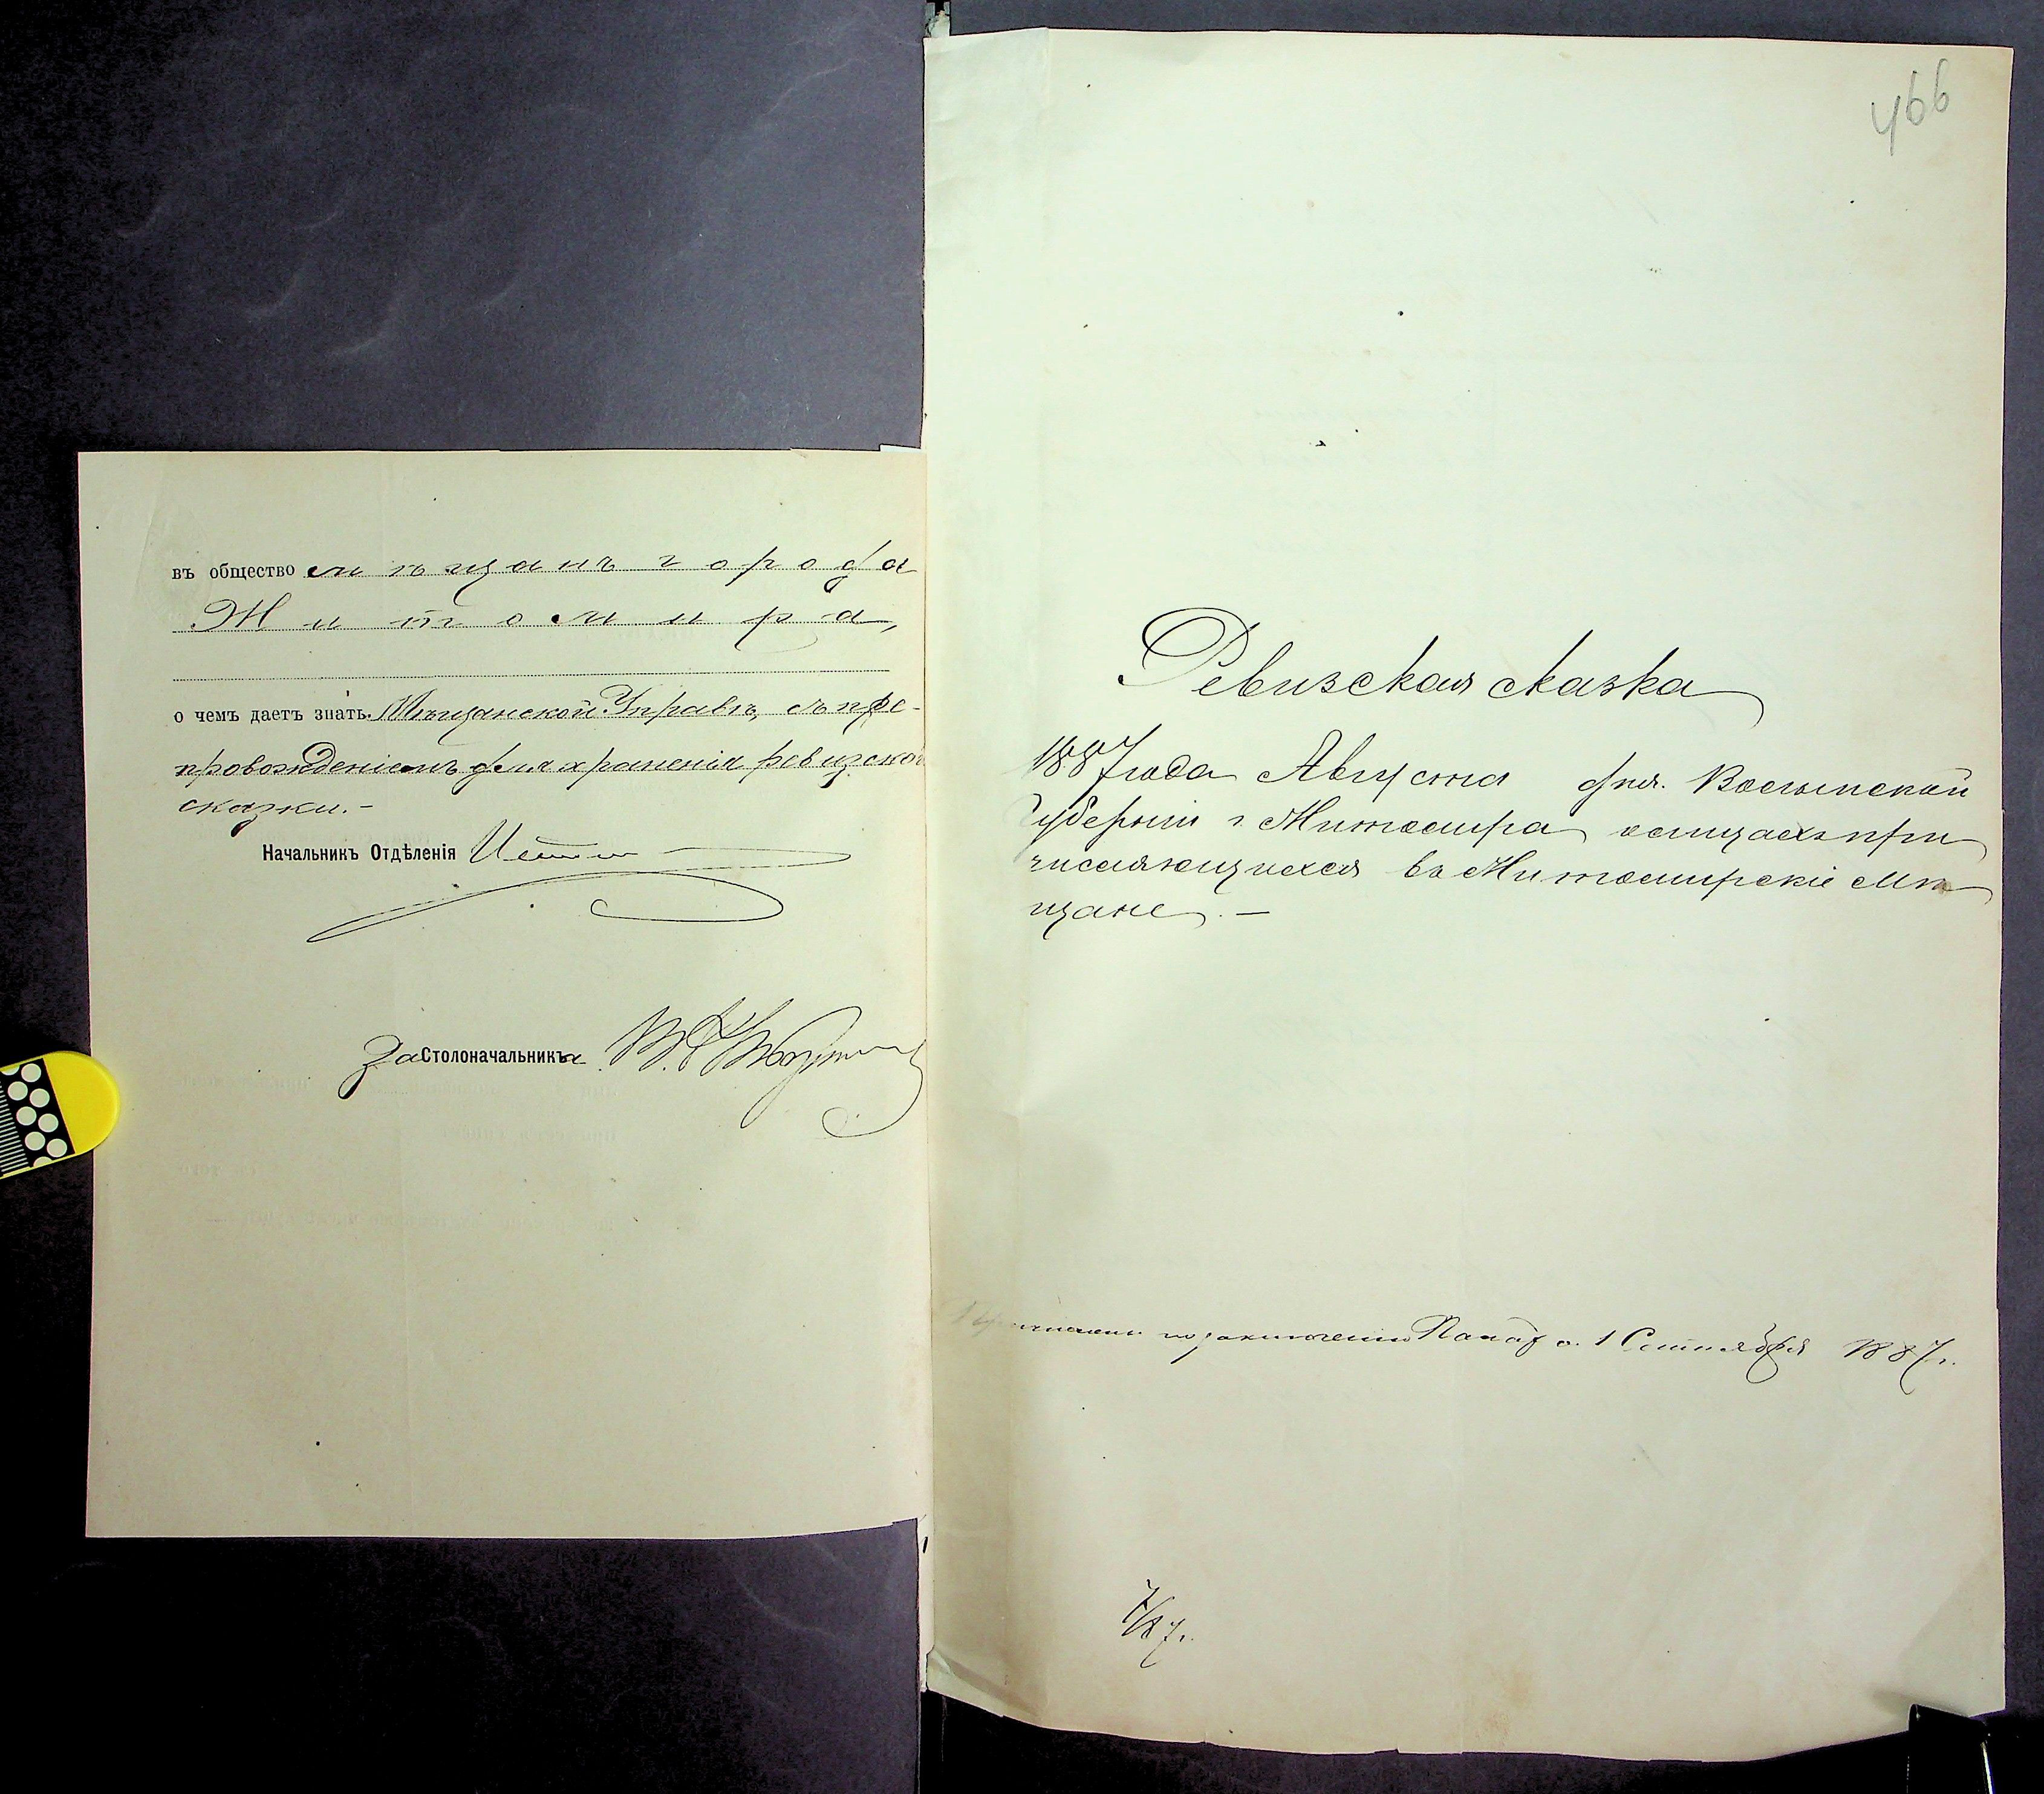 въ общество мѣщанъ города
Житомира,
о чемъ даетъ знать Мѣщанской Управѣ, съ пре-
провожденіемъ для храненія ревизской
сказки.-
Начальникъ Отдѣленія
За Столоначальника
466
Ревизская сказка
1887 года Августа дня. Волынской
Губерніи г. Житомира о лицахъ при
числяющихся въ Житомирскіе мѣ
щане. -
по заключенію Палаты 1 Сентября 1887 г.